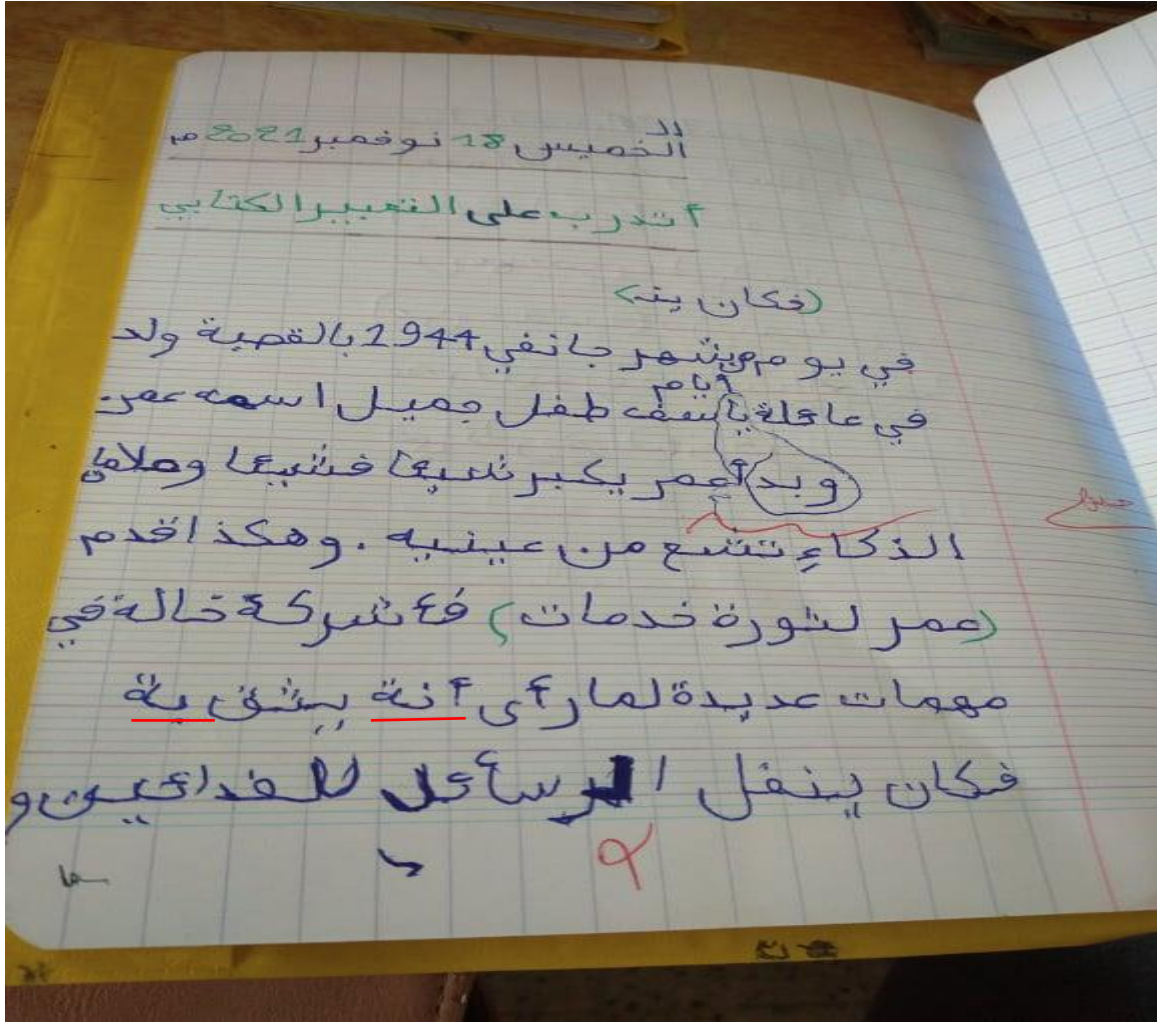 الخميس 18 نوفمبر 2021 م
أتدرب على التعبير الكتابي
(فكان ينـ)
في يوم من شهر جانفي 1944 بالقصبة ولد
أيام
في عائلة ياسف طفل جميل اسمه عمر
وبدأ عمر يكبر شيئا فشيئا وملامح
الذكاءِ تشع من عينيه . وهكذا قدم
(عمر لثورة خدمات) فأشركة خالة في
مهمات عديدة لما رأى أنة يثق بة
فكان ينقل الرسائل للفدائيين و